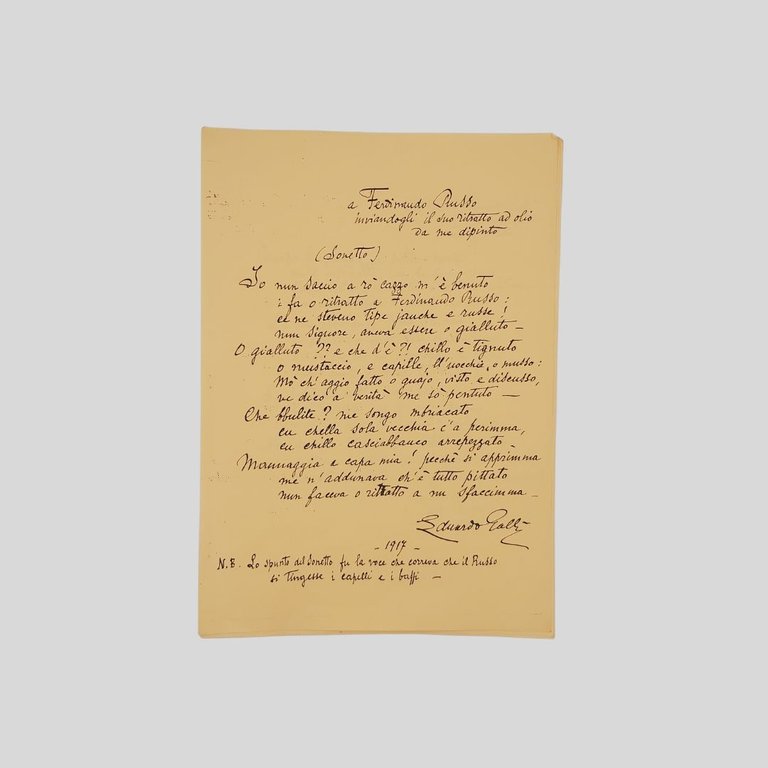 a Ferdinando Russo
inviandogli il suo ritratto ad olio
da me dipinto
(Sonetto)
Io nun saccio a rò cazzo m'è benuto
i fa o ritratto a Ferdinando Russo;
ce ne steveno tipe janche e russe!
nun signore, aveva essere o gialluto —
O gialluto ?? e che d'è?! chillo è tignuto
o mustaccio, e capille, ll'uocchie, o musso:
Mò ch'aggio fatto o guajo, visto e discusso,
ve dico a verità me sò pentuto —
Che bbulite? me songo mbriacato
cu chella sola vecchia c'a perimma,
cu chillo casciabbanco arrepezzato —
Mannaggia a capa mia! pecchè si apprimma
me n'addunava ch'è tutto pittato
nun faceva o ritratto a nu sfaccimma —
Eduardo
— 1917 —
N.B. Lo spunto del Sonetto fu la voce che correva che il Russo
si tingesse i capelli e i baffi —